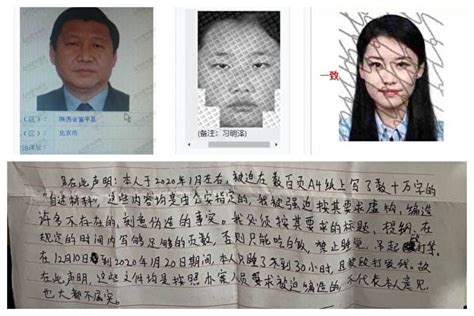 （区）：陕西省富平县
（区）：北京市
(备注：习明泽)
一致
在此声明：本人于2020年1月左右，被迫在数百页A4纸上写了数十万字的
“自述材料”，这些内容均是由公安指定的，我被强迫按其要求虚构、编造
许多不存在的、刻意伪造的事实。我必须按其要求的标题、提纲、在
规定的时间内写够足够的页数，否则只能吃白饭，禁止睡觉，
在12月10日到2020年1月20日期间，本人只睡了不到30小时，且被殴打致残。故
在此声明，这些文件均是按照办案人员要求被迫编造的，不代表本人意见
也大都不属实。